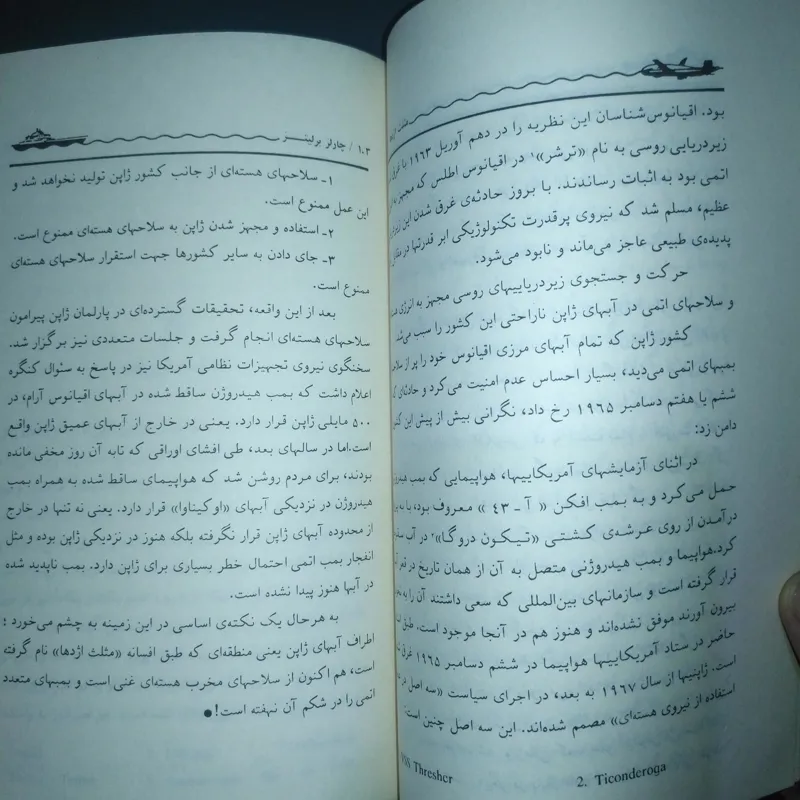 مثلث اژدها
بود. اقیانوس‌شناسان این نظریه را در دهم آوریل ۱۹۶۳ با غرق
زیردریایی روسی به نام «ترشر»¹ در اقیانوس اطلس که مجهز به
اتمی بود به اثبات رساندند. با بروز حادثه‌ی غرق شدن این
عظیم، مسلم شد که نیروی پرقدرت تکنولوژیکی ابر قدرتها در مقابل
پدیده‌ی طبیعی عاجز می‌ماند و نابود می‌شود.
حرکت و جستجوی زیردریاییهای روسی مجهز به انرژی
و سلاحهای اتمی در آبهای ژاپن ناراحتی این کشور را سبب می‌شد.
کشور ژاپن که تمام آبهای مرزی اقیانوس خود را پر از
بمبهای اتمی می‌دید، بسیار احساس عدم امنیت می‌کرد و حادثه‌ای که
ششم یا هفتم دسامبر ۱۹۶۵ رخ داد، نگرانی بیش از پیش این
دامن زد:
در اثنای آزمایشهای آمریکاییها، هواپیمایی که بمب
حمل می‌کرد و به بمب افکن « آ ـ ۴۳ » معروف بود، با به
درآمدن از روی عرشه‌ی کشتی «تیکون دروگا»² در آب
کرد.هواپیما و بمب هیدروژنی متصل به آن از همان تاریخ در قعر
قرار گرفته است و سازمانهای بین‌المللی که سعی داشتند آن را به
بیرون آورند موفق نشده‌اند و هنوز هم در آنجا موجود است. طبق
حاضر در ستاد آمریکاییها هواپیما در ششم دسامبر ۱۹۶۵ غرق
است. ژاپنیها از سال ۱۹۶۷ به بعد، در اجرای سیاست «سه اصل در
استفاده از نیروی هسته‌ای» مصمم شده‌اند. این سه اصل چنین است:
Thresher
2. Ticonderoga
۱۰۳ / چارلز برلیتـــز
۱ـ سلاحهای هسته‌ای از جانب کشور ژاپن تولید نخواهد شد و
این عمل ممنوع است.
۲ـ استفاده و مجهز شدن ژاپن به سلاحهای هسته‌ای ممنوع است.
۳ـ جای دادن به سایر کشورها جهت استقرار سلاحهای هسته‌ای
ممنوع است.
بعد از این واقعه، تحقیقات گسترده‌ای در پارلمان ژاپن پیرامون
سلاحهای هسته‌ای انجام گرفت و جلسات متعددی نیز برگزار شد.
سخنگوی نیروی تجهیزات نظامی آمریکا نیز در پاسخ به سئوال کنگره
اعلام داشت که بمب هیدروژن ساقط شده در آبهای اقیانوس آرام، در
۵۰۰ مایلی ژاپن قرار دارد. یعنی در خارج از آبهای عمیق ژاپن واقع
است.اما در سالهای بعد، طی افشای اوراقی که تابه آن روز مخفی مانده
بودند، برای مردم روشن شد که هواپیمای ساقط شده به همراه بمب
هیدروژن در نزدیکی آبهای «اوکیناوا» قرار دارد. یعنی نه تنها در خارج
از محدوده آبهای ژاپن قرار نگرفته بلکه هنوز در نزدیکی ژاپن بوده و مثل
انفجار بمب اتمی احتمال خطر بسیاری برای ژاپن دارد. بمب ناپدید شده
در آبها هنوز پیدا نشده است.
به هرحال یک نکته‌ی اساسی در این زمینه به چشم می‌خورد ؛
اطراف آبهای ژاپن یعنی منطقه‌ای که طبق افسانه «مثلث اژدها» نام گرفته
است، هم اکنون از سلاحهای مخرب هسته‌ای غنی است و بمبهای متعدد
اتمی را در شکم آن نهفته است!●